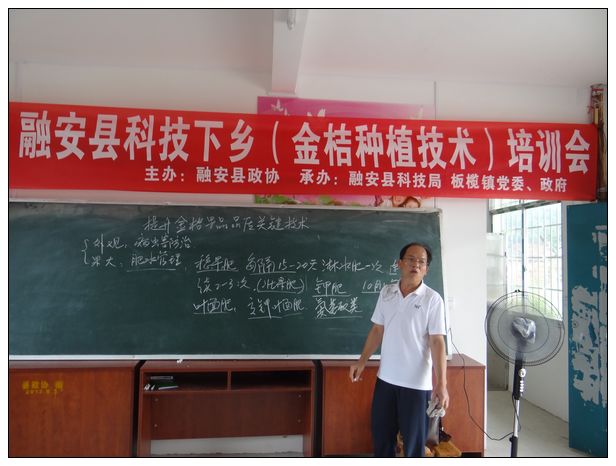 融安县科技下乡（金桔种植技术）培训会
主办：融安县政协 承办：融安县科技局 板榄镇党委、政府
提升金桔果品品质关键技术
外观，病虫害防治
果大、肥水管理，稳果肥 每隔15-20天淋水肥一次 连
续2-3次，(壮果肥) 钾肥 10月
叶面肥，高钾叶面肥 氨基酸类